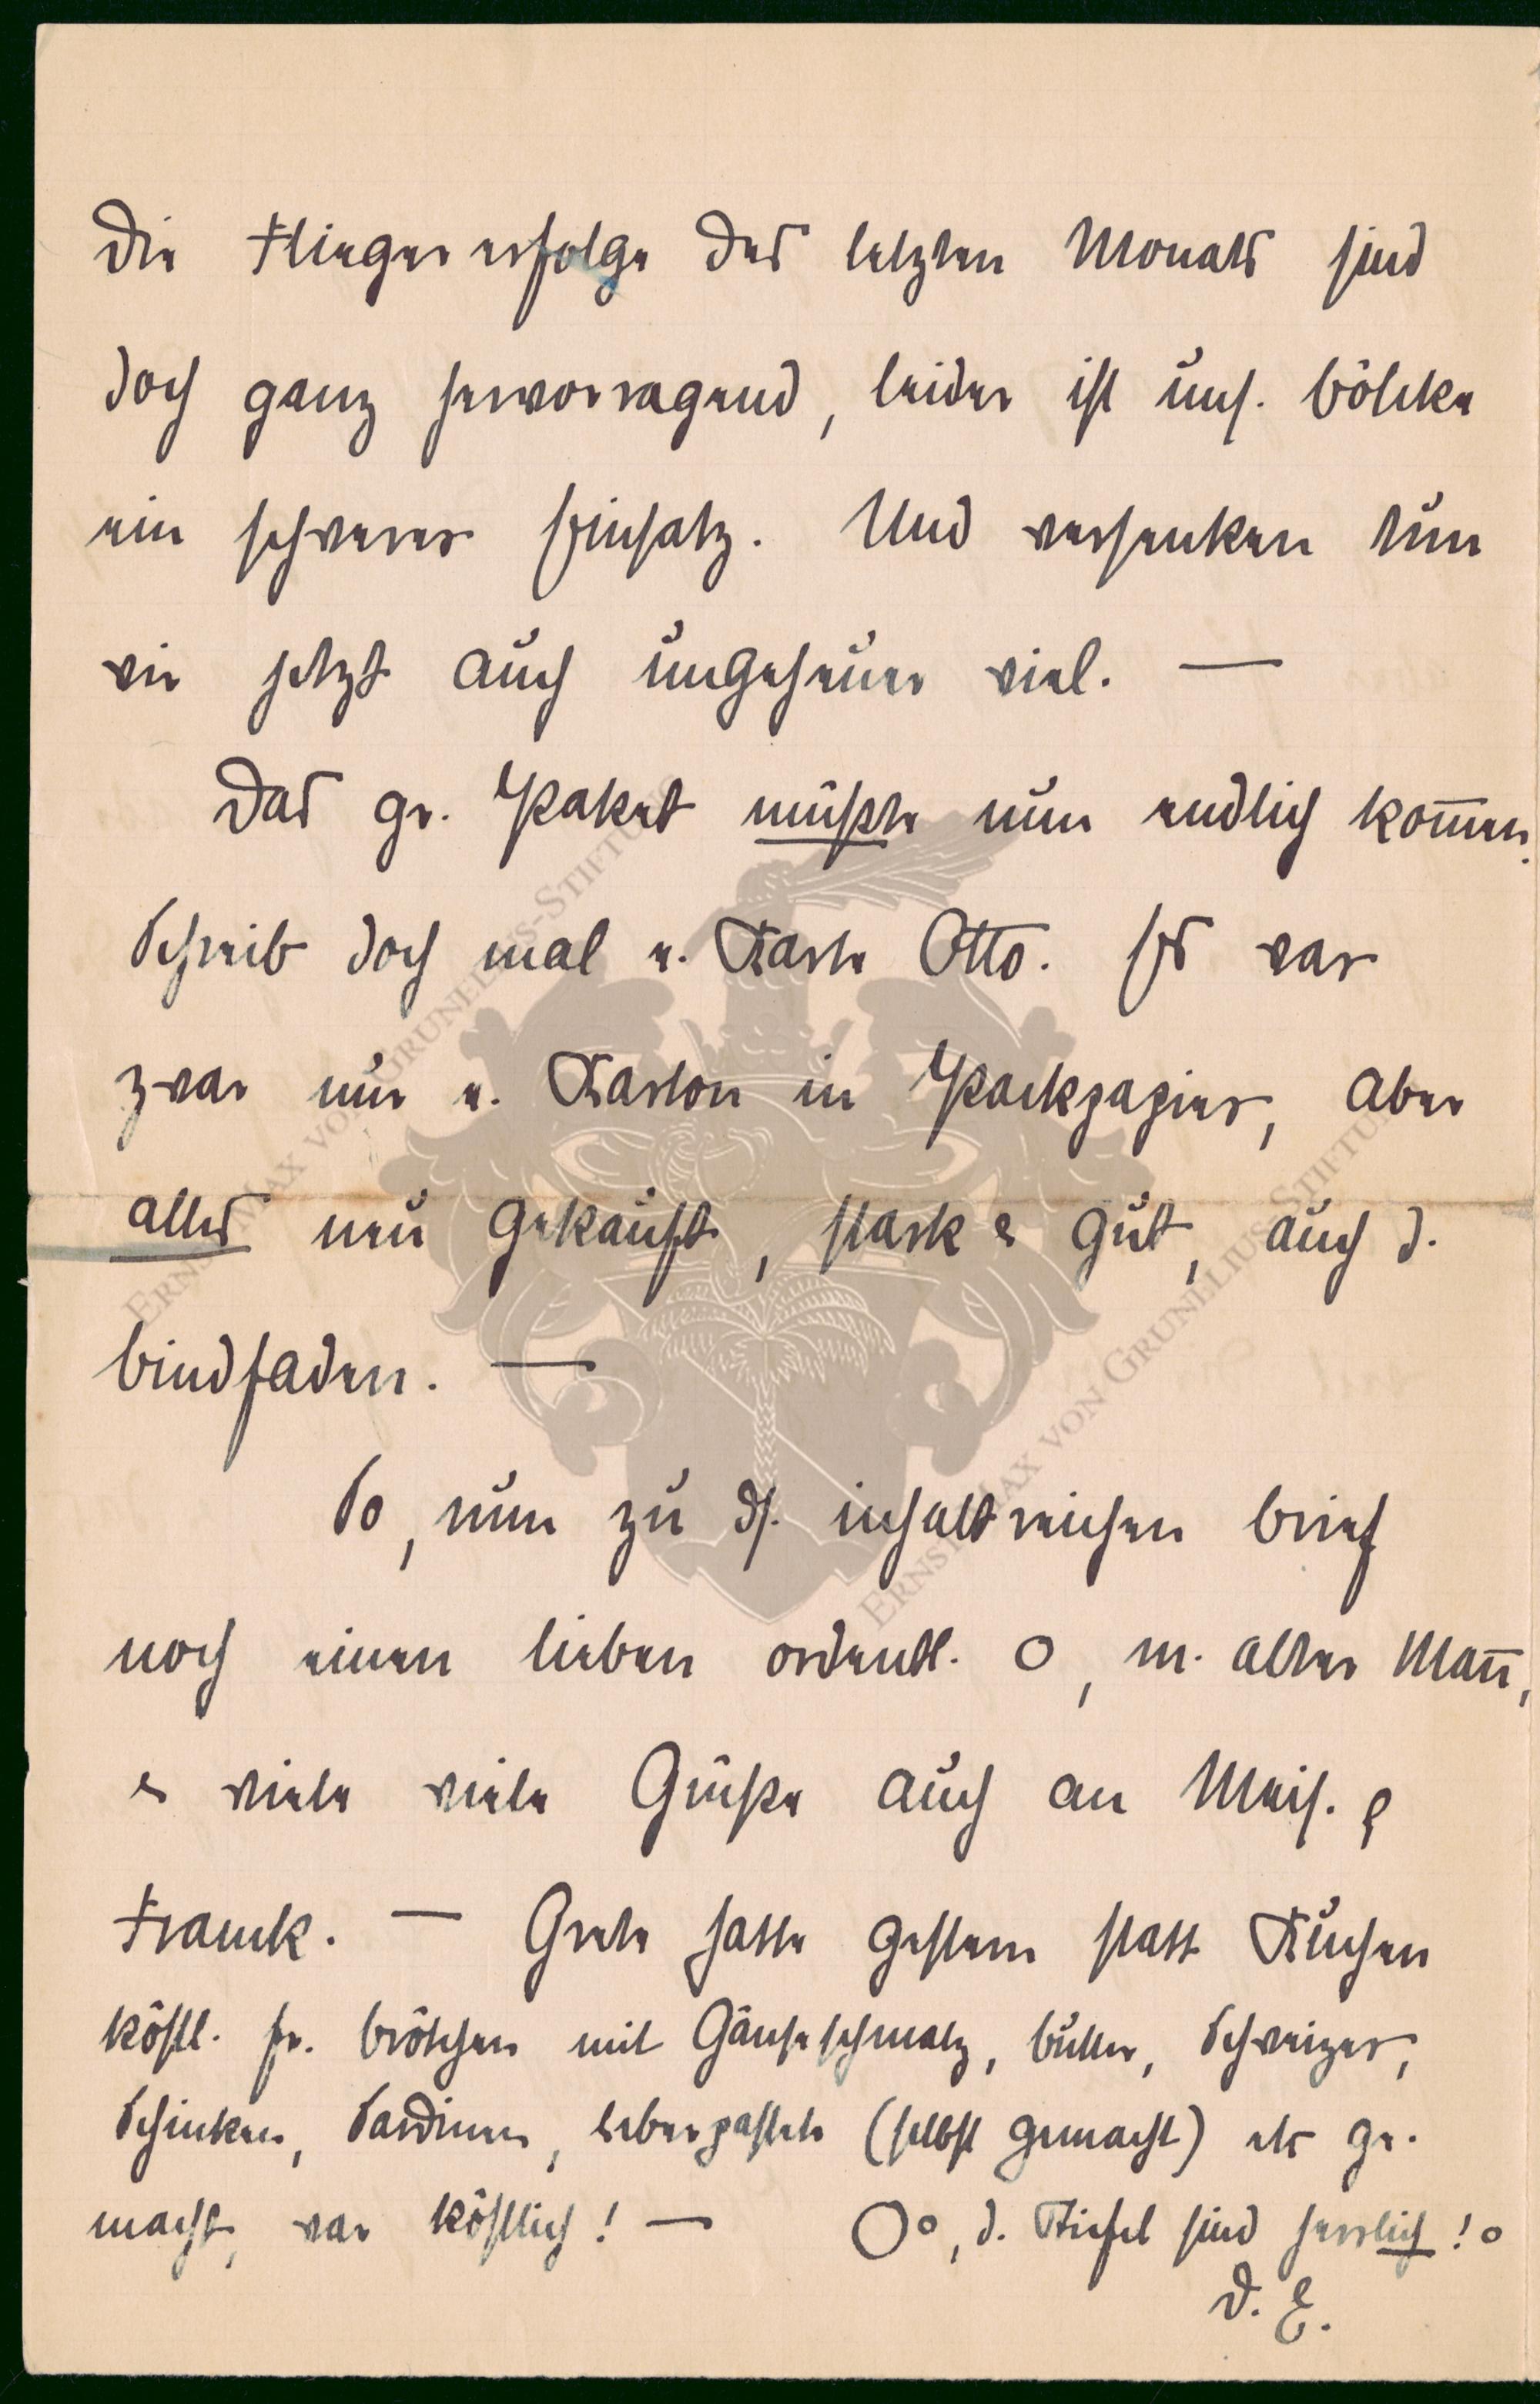 Die Fliegererfolge des letzten Monats sind
doch ganz hervorragend, leider ist uns. Bölcke
ein schwerer Einsatz. Und versenken tun
wir jetzt auch ungeheuer viel. —
Das gr. Paket müßte nun endlich kom̄en.
Schreib doch mal e. Karte Otto. Es war
zwar nur e. Karton in Packpapier, aber
alles neu gekauft, stark & gut, auch d.
Bindfaden. —
So, nun zu ds. inhaltreichen Brief
noch einen lieben ordentl. O, m. alter Man̄,
& viele viele Grüße auch an Meis. &
Franck. — Grete hatte gestern statt Kuchen
köstl. fr. Brötchen mit Gänseschmalz, Butter, Schweizer,
Schinken, Sardinen, Leberpastete (selbst gemacht) etc ge-
macht, war köstlich! — Oo, d. Stiefel sind herrlich! o
D. E.
ERNST MAX VON GRUNELIUS-STIFTUNG
ERNST MAX VON GRUNELIUS-STIFTUNG